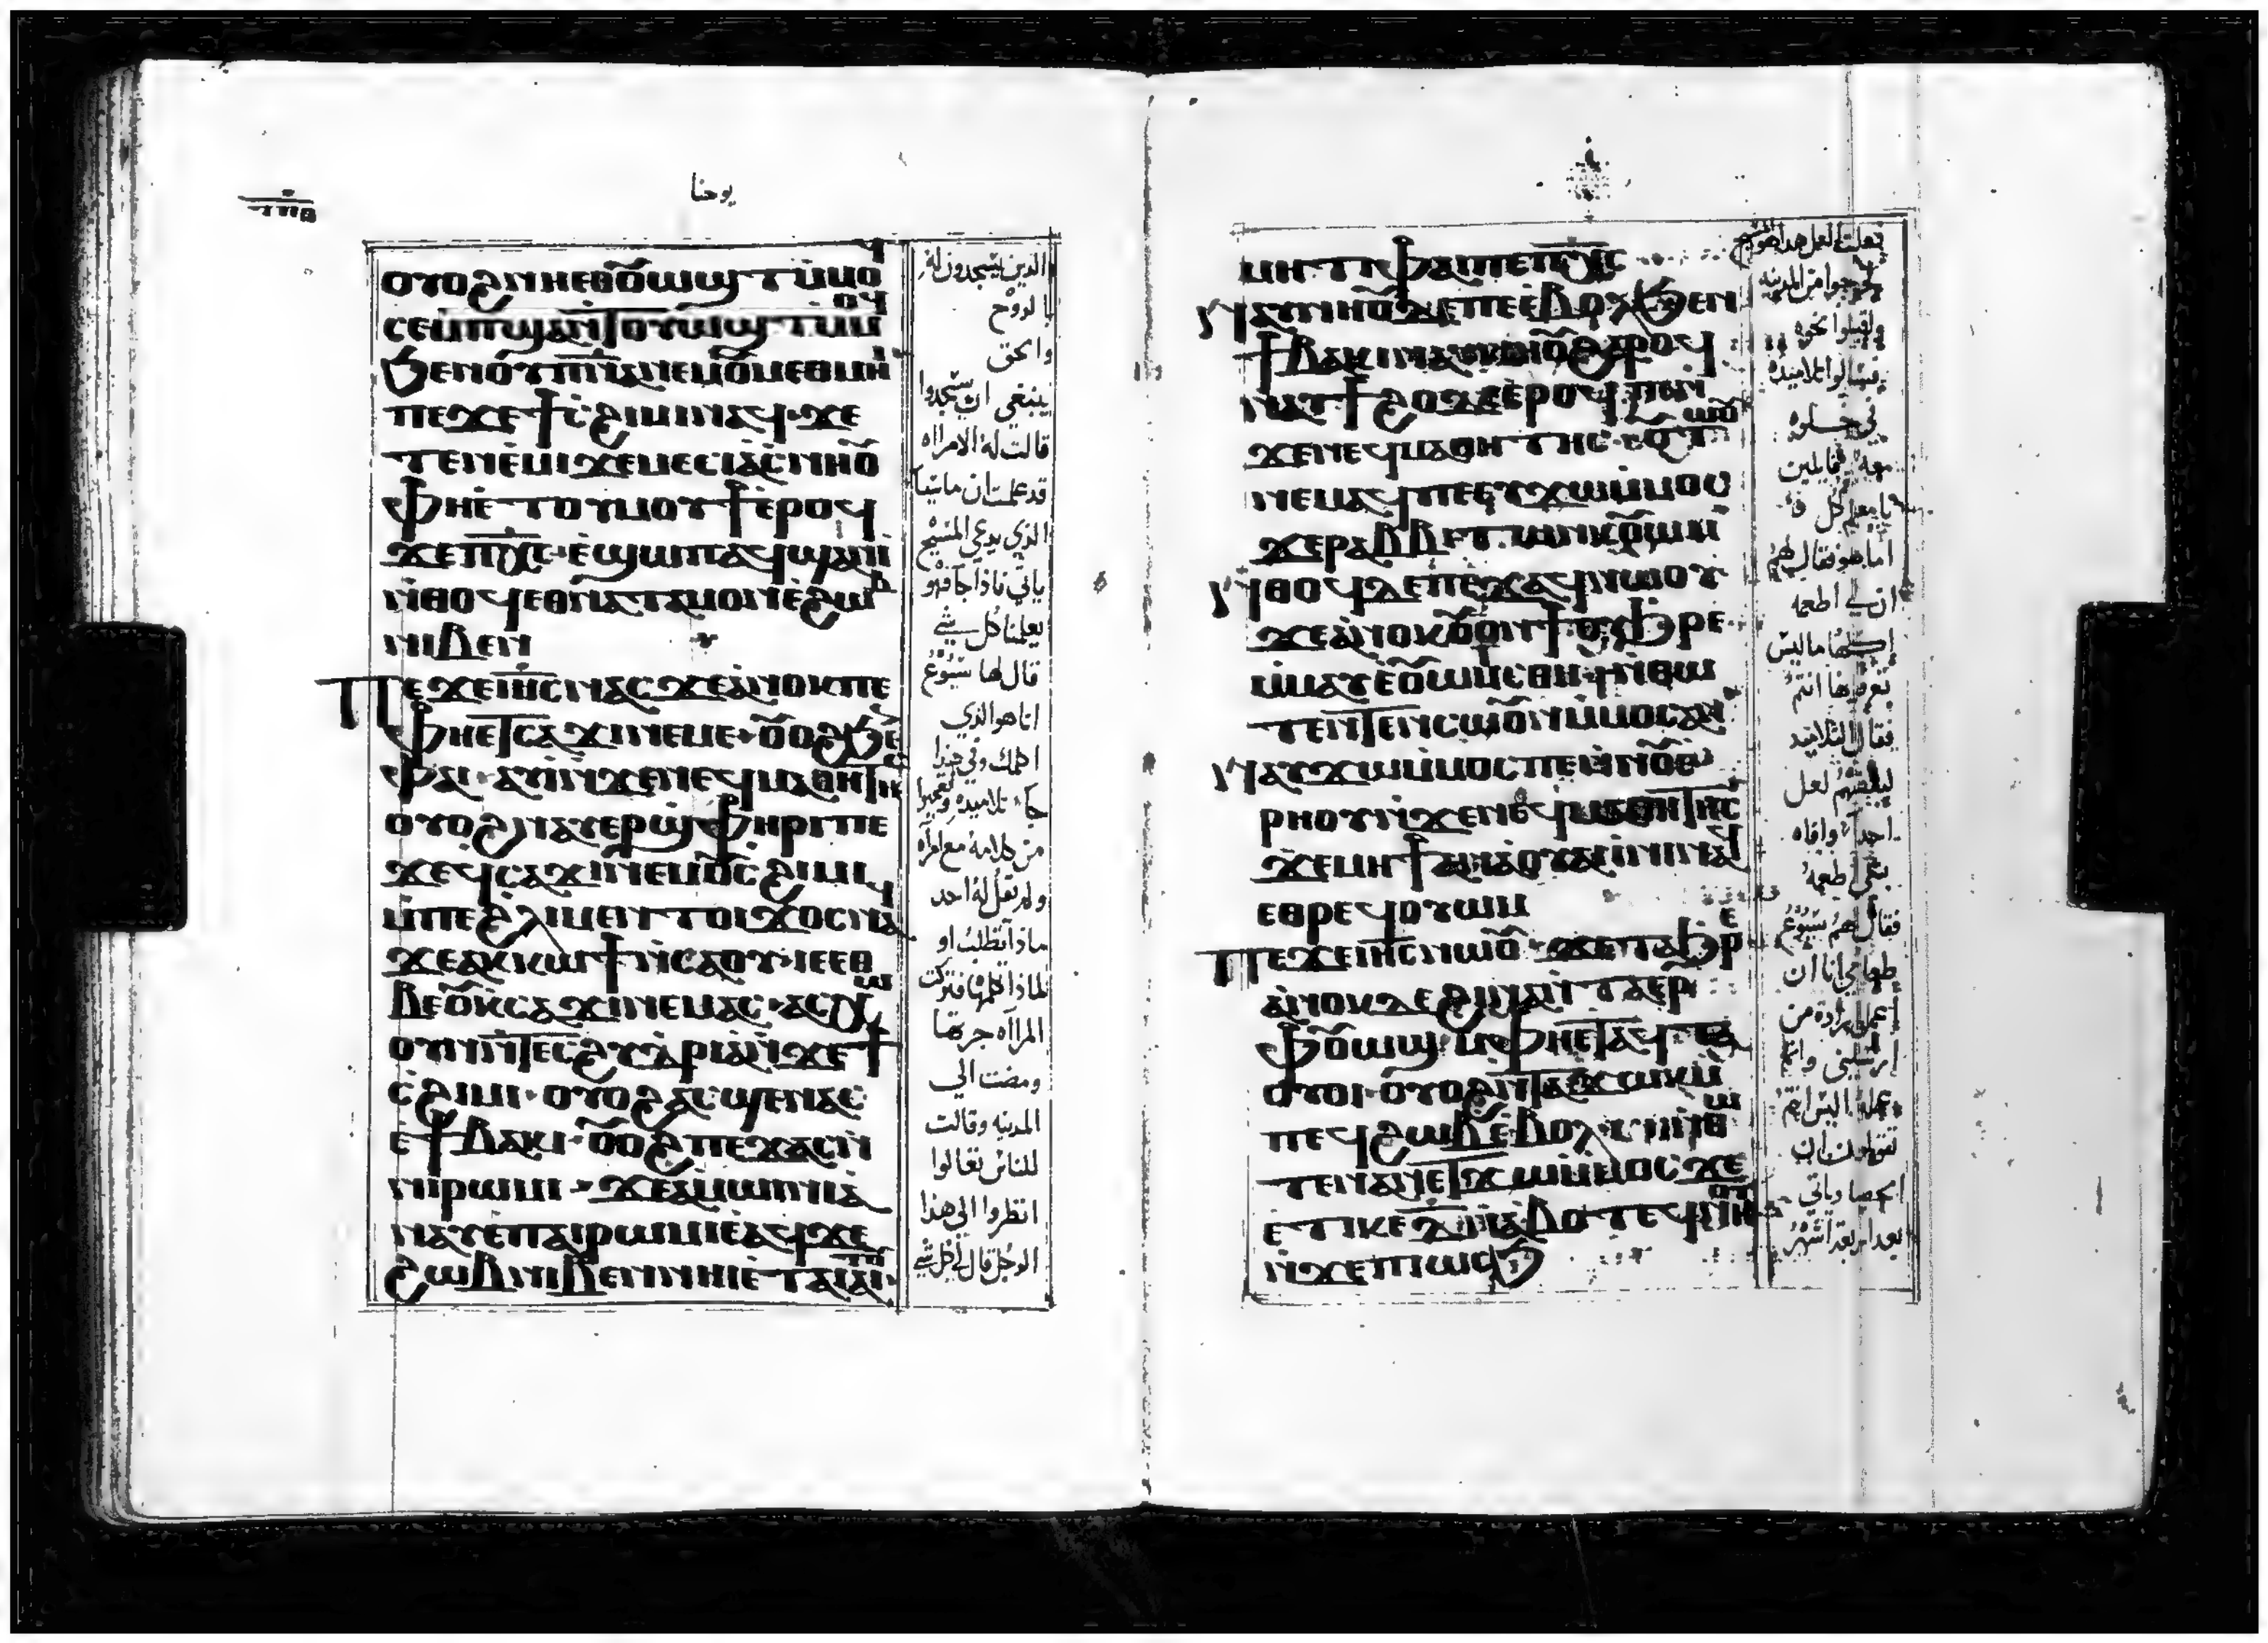 يوحنا
ⲟⲩⲟϩ ⲛⲏⲉⲑⲟⲩⲱϣⲧ ⲙⲙⲟϥ
ⲥⲉⲙⲡϣⲁ ⲛⲧⲟⲩⲟⲩⲱϣⲧ ⲙⲙⲟϥ
ϧⲉⲛ ⲟⲩⲡⲛⲁ ⲛⲉⲙ ⲟⲩⲙⲉⲑⲙⲏⲓ
ⲡⲉϫⲉ ϯⲥϩⲓⲙⲓ ⲛⲁϥ ϫⲉ
ⲧⲉⲛⲉⲙⲓ ϫⲉ ⲙⲉⲥⲓⲁⲥ ⲛⲏⲟⲩ
ⲫⲏⲉⲧⲟⲩⲙⲟⲩϯ ⲉⲣⲟϥ
ϫⲉ ⲡⲭⲥ ⲉϣⲱⲡ ⲁϥϣⲁⲛⲓ
ⲛⲑⲟϥ ⲉⲑⲛⲁⲧⲁⲙⲟⲛ ⲉϩⲱⲃ
ⲛⲓⲃⲉⲛ
ⲡⲉϫⲉ ⲓⲏⲥ ⲛⲁⲥ ϫⲉ ⲁⲛⲟⲕ ⲡⲉ
ⲫⲏⲉⲧⲥⲁϫⲓ ⲛⲉⲙⲉ ⲟⲩⲟϩ ϧⲉⲛ
ⲫⲁⲓ ⲁⲩⲓ ⲛϫⲉ ⲛⲉϥⲙⲁⲑⲏⲧⲏⲥ
ⲟⲩⲟϩ ⲛⲁⲩⲉⲣϣⲫⲏⲣⲓ ⲡⲉ
ϫⲉ ϥⲥⲁϫⲓ ⲛⲉⲙ ⲟⲩⲥϩⲓⲙⲓ
ⲙⲡⲉ ϩⲗⲓ ⲙⲉⲛⲧⲟⲓ ϫⲟⲥ ⲛⲁϥ
ϫⲉ ⲁⲕⲕⲱϯ ⲛⲥⲁ ⲟⲩ ⲓⲉ ⲉⲑ
ⲃⲉⲟⲩ ⲕⲥⲁϫⲓ ⲛⲉⲙⲁⲥ ⲁⲥⲭⲱ
ⲟⲩⲛ ⲛⲧⲉⲥϩⲩⲇⲣⲓⲁ ⲛϫⲉ ϯ
ⲥϩⲓⲙⲓ ⲟⲩⲟϩ ⲁⲥϣⲉⲛⲁⲥ
ⲉϯⲃⲁⲕⲓ ⲟⲩⲟϩ ⲡⲉϫⲁⲥ ⲛ
ⲛⲓⲣⲱⲙⲓ ϫⲉ ⲁⲙⲱⲓⲛⲓ ⲁ
ⲛⲁⲩ ⲉⲡⲁⲓⲣⲱⲙⲓ ⲉⲁϥϫⲉ
ϩⲱⲃ ⲛⲓⲃⲉⲛ ⲛⲏⲓ ⲉⲧⲁⲓⲁⲓⲧⲟⲩ
الذين يسجدون له
بالروح
والحق
ينبغي ان يسجدوا
قالت له الامراه
قد علمت ان ماسيا
الذي يدعي المسيح
ياتي فاذا جا فهو
يعلمنا كل شي
قال لها يسوع
انا هو الذي
اكلمك وفي هذا
جا تلاميذه وتعجبوا
من كلامه مع امراه
ولم يقل له احد
ماذا تطلب او
لماذا تكلمها فتركت
المراه جرتها
ومضت الي
المدينه وقالت
للناس تعالوا
انظروا الي هذا
الرجل قال لي كل شي
ⲙⲏⲧⲓ ⲫⲁⲓ ⲡⲉ ⲡⲭⲥ
ⲛⲁⲩⲛⲏⲟⲩ ⲇⲉ ⲡⲉ ⲉⲃⲟⲗ ϧⲉⲛ
ϯⲃⲁⲕⲓ ⲛⲁⲩⲛⲏⲟⲩ ϩⲁⲣⲟϥ
ⲛⲁⲩϯϩⲟ ⲇⲉ ⲉⲣⲟϥ ⲡⲉ
ϫⲉ ⲛⲉϥⲙⲁⲑⲏⲧⲏⲥ
ⲛⲉⲙⲁϥ ⲡⲉ ⲉⲩϫⲱ ⲙⲙⲟⲥ
ϫⲉ ⲣⲁⲃⲃⲓ ⲧⲱⲛⲕ ⲟⲩⲱⲙ
ⲛⲑⲟϥ ⲇⲉ ⲡⲉϫⲁϥ ⲛⲱⲟⲩ
ϫⲉ ⲁⲛⲟⲕ ⲟⲩⲟⲛϯ ⲟⲩϧⲣⲉ
ⲙⲙⲁⲩ ⲉⲟⲩⲱⲙⲥ ⲑⲏ ⲛⲑⲱ
ⲧⲉⲛ ⲧⲉⲧⲉⲛⲥⲱⲟⲩⲛ ⲙⲙⲟⲥ ⲁⲛ
ⲛⲁⲩϫⲱ ⲙⲙⲟⲥ ⲡⲉ ⲛⲛⲟⲩⲉ
ⲣⲏⲟⲩ ⲛϫⲉ ⲛⲉϥⲙⲁⲑⲏⲧⲏⲥ
ϫⲉ ⲙⲏϯ ⲁⲛ ⲁⲟⲩⲁⲓ ⲓⲛⲓ ⲛⲁϥ
ⲉⲑⲣⲉϥⲟⲩⲱⲙ
ⲡⲉϫⲉ ⲓⲏⲥ ⲛⲱⲟⲩ ϫⲉ ⲧⲁϧⲣⲉ
ⲁⲛⲟⲕ ⲇⲉ ϩⲓⲛⲁ ⲛⲧⲁⲉⲣ
ⲫⲟⲩⲱϣ ⲙⲫⲏⲉⲧⲁϥⲧⲁ
ⲟⲩⲟⲓ ⲟⲩⲟϩ ⲛⲧⲁϫⲱⲕ ⲙ
ⲡⲉϥϩⲱⲃ ⲉⲃⲟⲗ ⲙⲏ ⲛⲑⲱ
ⲧⲉⲛ ⲁⲛ ⲉⲧϫⲱ ⲙⲙⲟⲥ ϫⲉ
ⲉⲧⲓ ⲕⲉ ⲇ ⲛⲁⲃⲟⲧ ⲧⲉ ϥⲛⲏⲟⲩ
ⲛϫⲉ ⲡⲓⲱⲥϧ
فعلت لعل هذا هو المسيح
فخرجوا من المدينه
واقبلوا نحوه
تلاميذه
معه قايلين
يا معلم كل
اما هو فقال لهم
ان لي اطعمه
اكلها ما ليس
تعرفونها انتم
فقال التلاميذ
لبعضهم لعل
احدا وافاه
بشي اطعمه
فقال لهم يسوع
طعامي انا ان
اعمل ارادة من
ارسلني واتم
عمله اليس انتم
تقولون ان
الحصاد ياتي
بعد اربعة اشهر